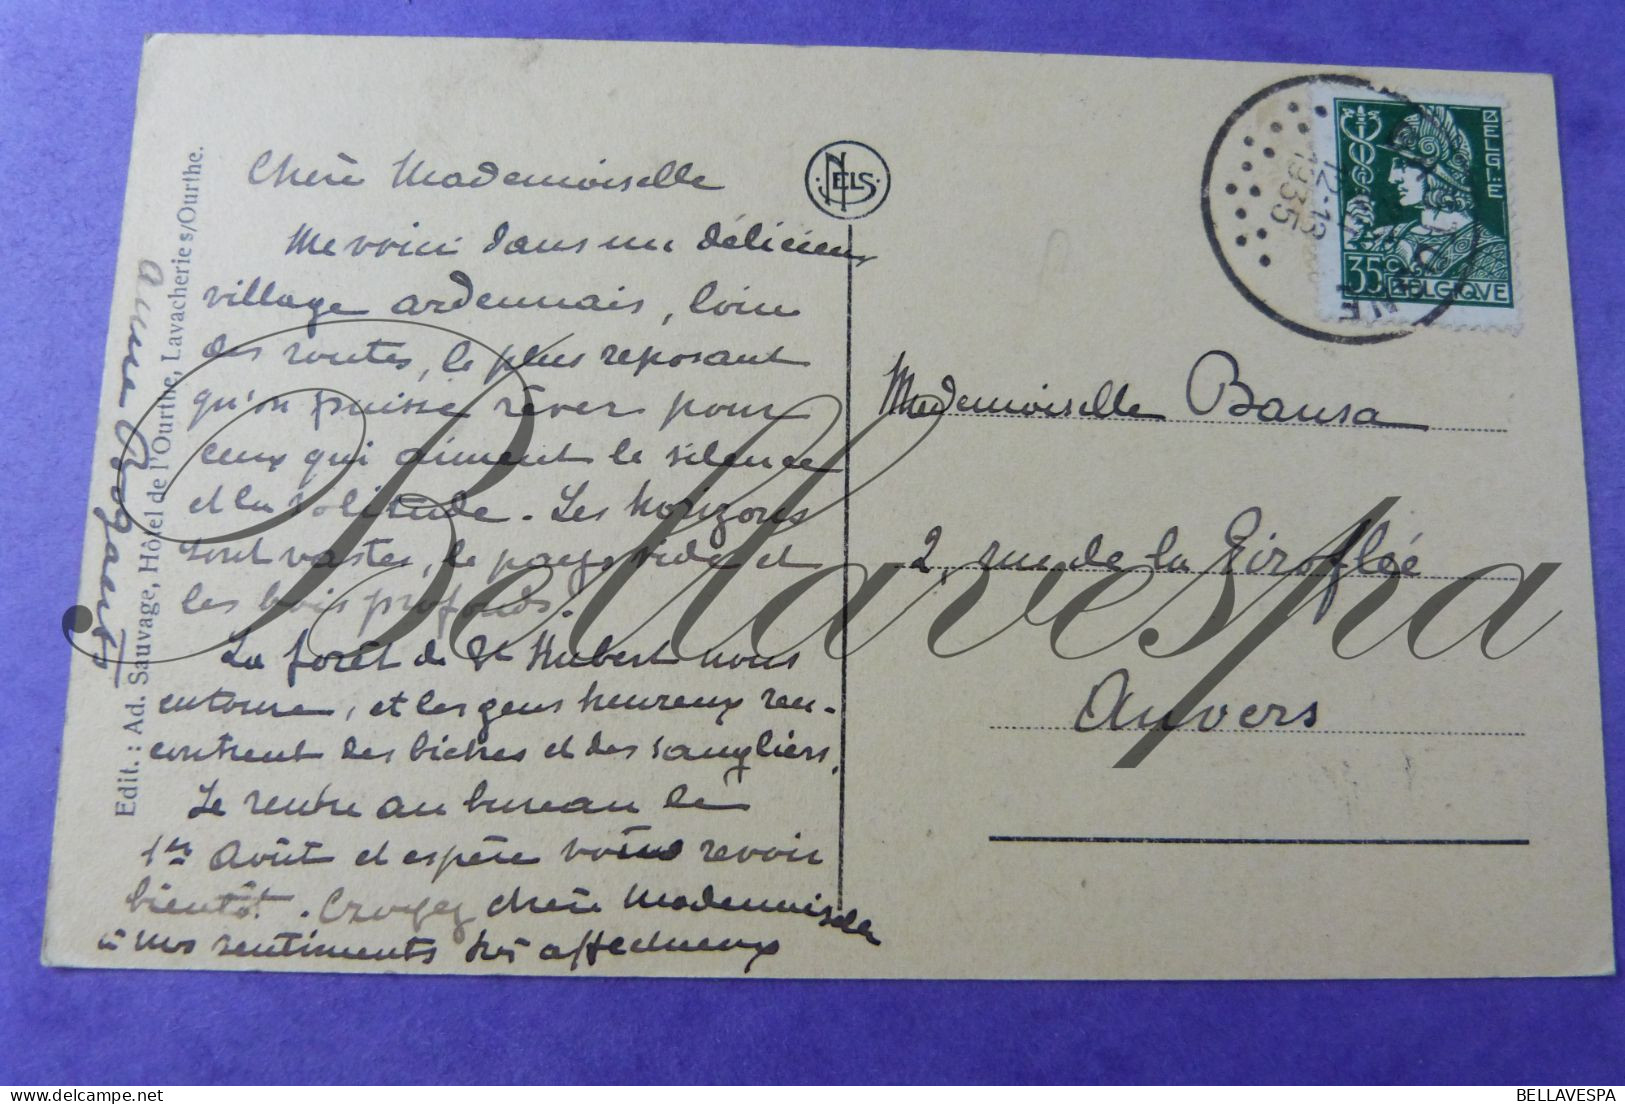 Chère Mademoiselle
Me voici dans un délicieux
village ardennais, loin
des routes, le plus reposant
qu'on puisse rêver pour
ceux qui aiment le silence
et la solitude. Les horizons
sont vastes, le pays vide et
les bois profonds.
La forêt de St Hubert nous
entoure, et les gens heureux ren-
contrent des biches et des sangliers.
Je rentre au bureau le
1er Août et espère vous revoir
bientôt. Croyez chère Mademoiselle
à mes sentiments très affectueux
Edit. : Ad. Sauvage, Hôtel de l'Ourthe, Lavacherie s/Ourthe.
NELS
12-13
1935
BELGIE
35c
BELGIQVE
Mademoiselle Bausa
2, rue de la Giroflée
Anvers
Bellavespa
BELLAVESPA